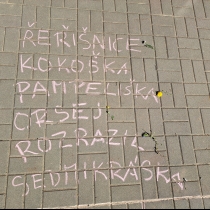 ŘEŘIŠNICE
KOKOŠKA
PAMPELIŠKA
ORSEJ
ROZRAZIL
SEDMIKRÁSKA